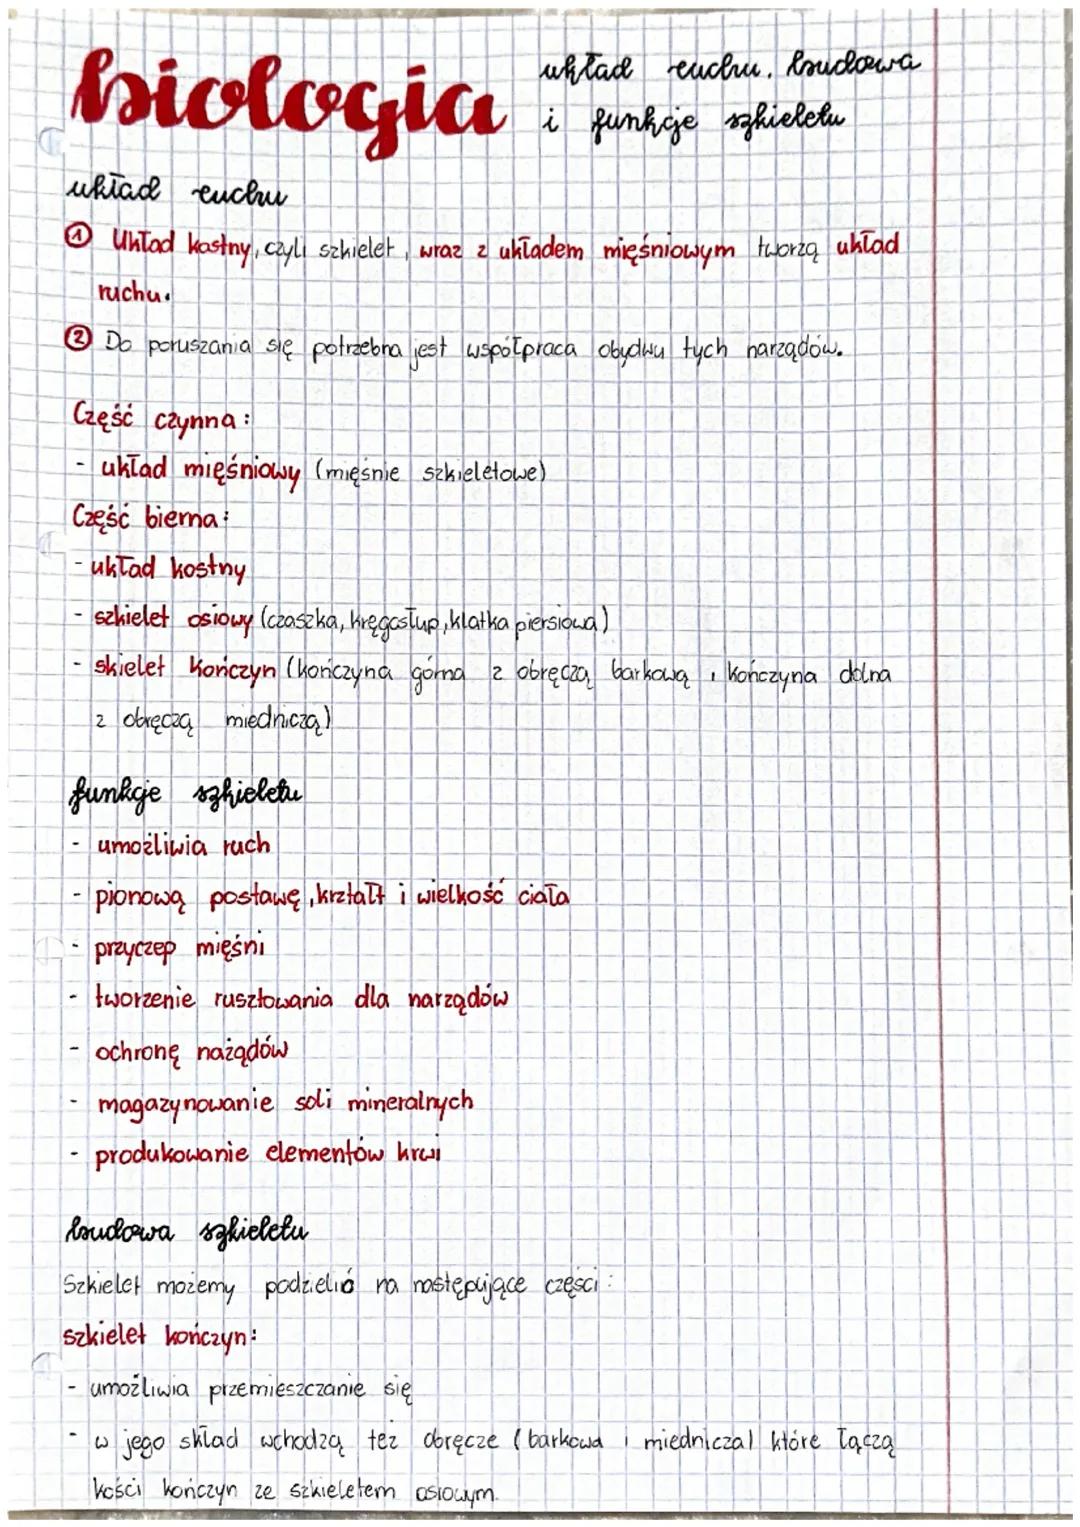 biologia
układ ruchu. budowa
i funkcje szkieletu
układ ruchu
① Układ kostny, czyli szkielet, wraz z układem mięśniowym tworzą układ
ruchu.
② Do poruszania się potrzebna jest współpraca obydwu tych narządów.
Część czynna:
- układ mięśniowy (mięśnie szkieletowe)
Część bierna:
- układ kostny
- szkielet osiowy (czaszka, kręgosłup, klatka piersiowa)
- skielet kończyn (kończyna górna z obręczą barkową i kończyna dolna
z obręczą miedniczą)
funkcje szkieletu
- umożliwia ruch
- pionową postawę, krztałt i wielkość ciała
- przyczep mięśni
- tworzenie rusztowania dla narządów
- ochronę nażądów
- magazynowanie soli mineralnych
- produkowanie elementów krwi
budowa szkieletu
Szkielet możemy podzielić na następujące części:
szkielet kończyn:
- umożliwia przemieszczanie się
- w jego skład wchodzą też obręcze (barkowa i miednicza) które łączą
kości kończyn ze szkieletem osiowym.